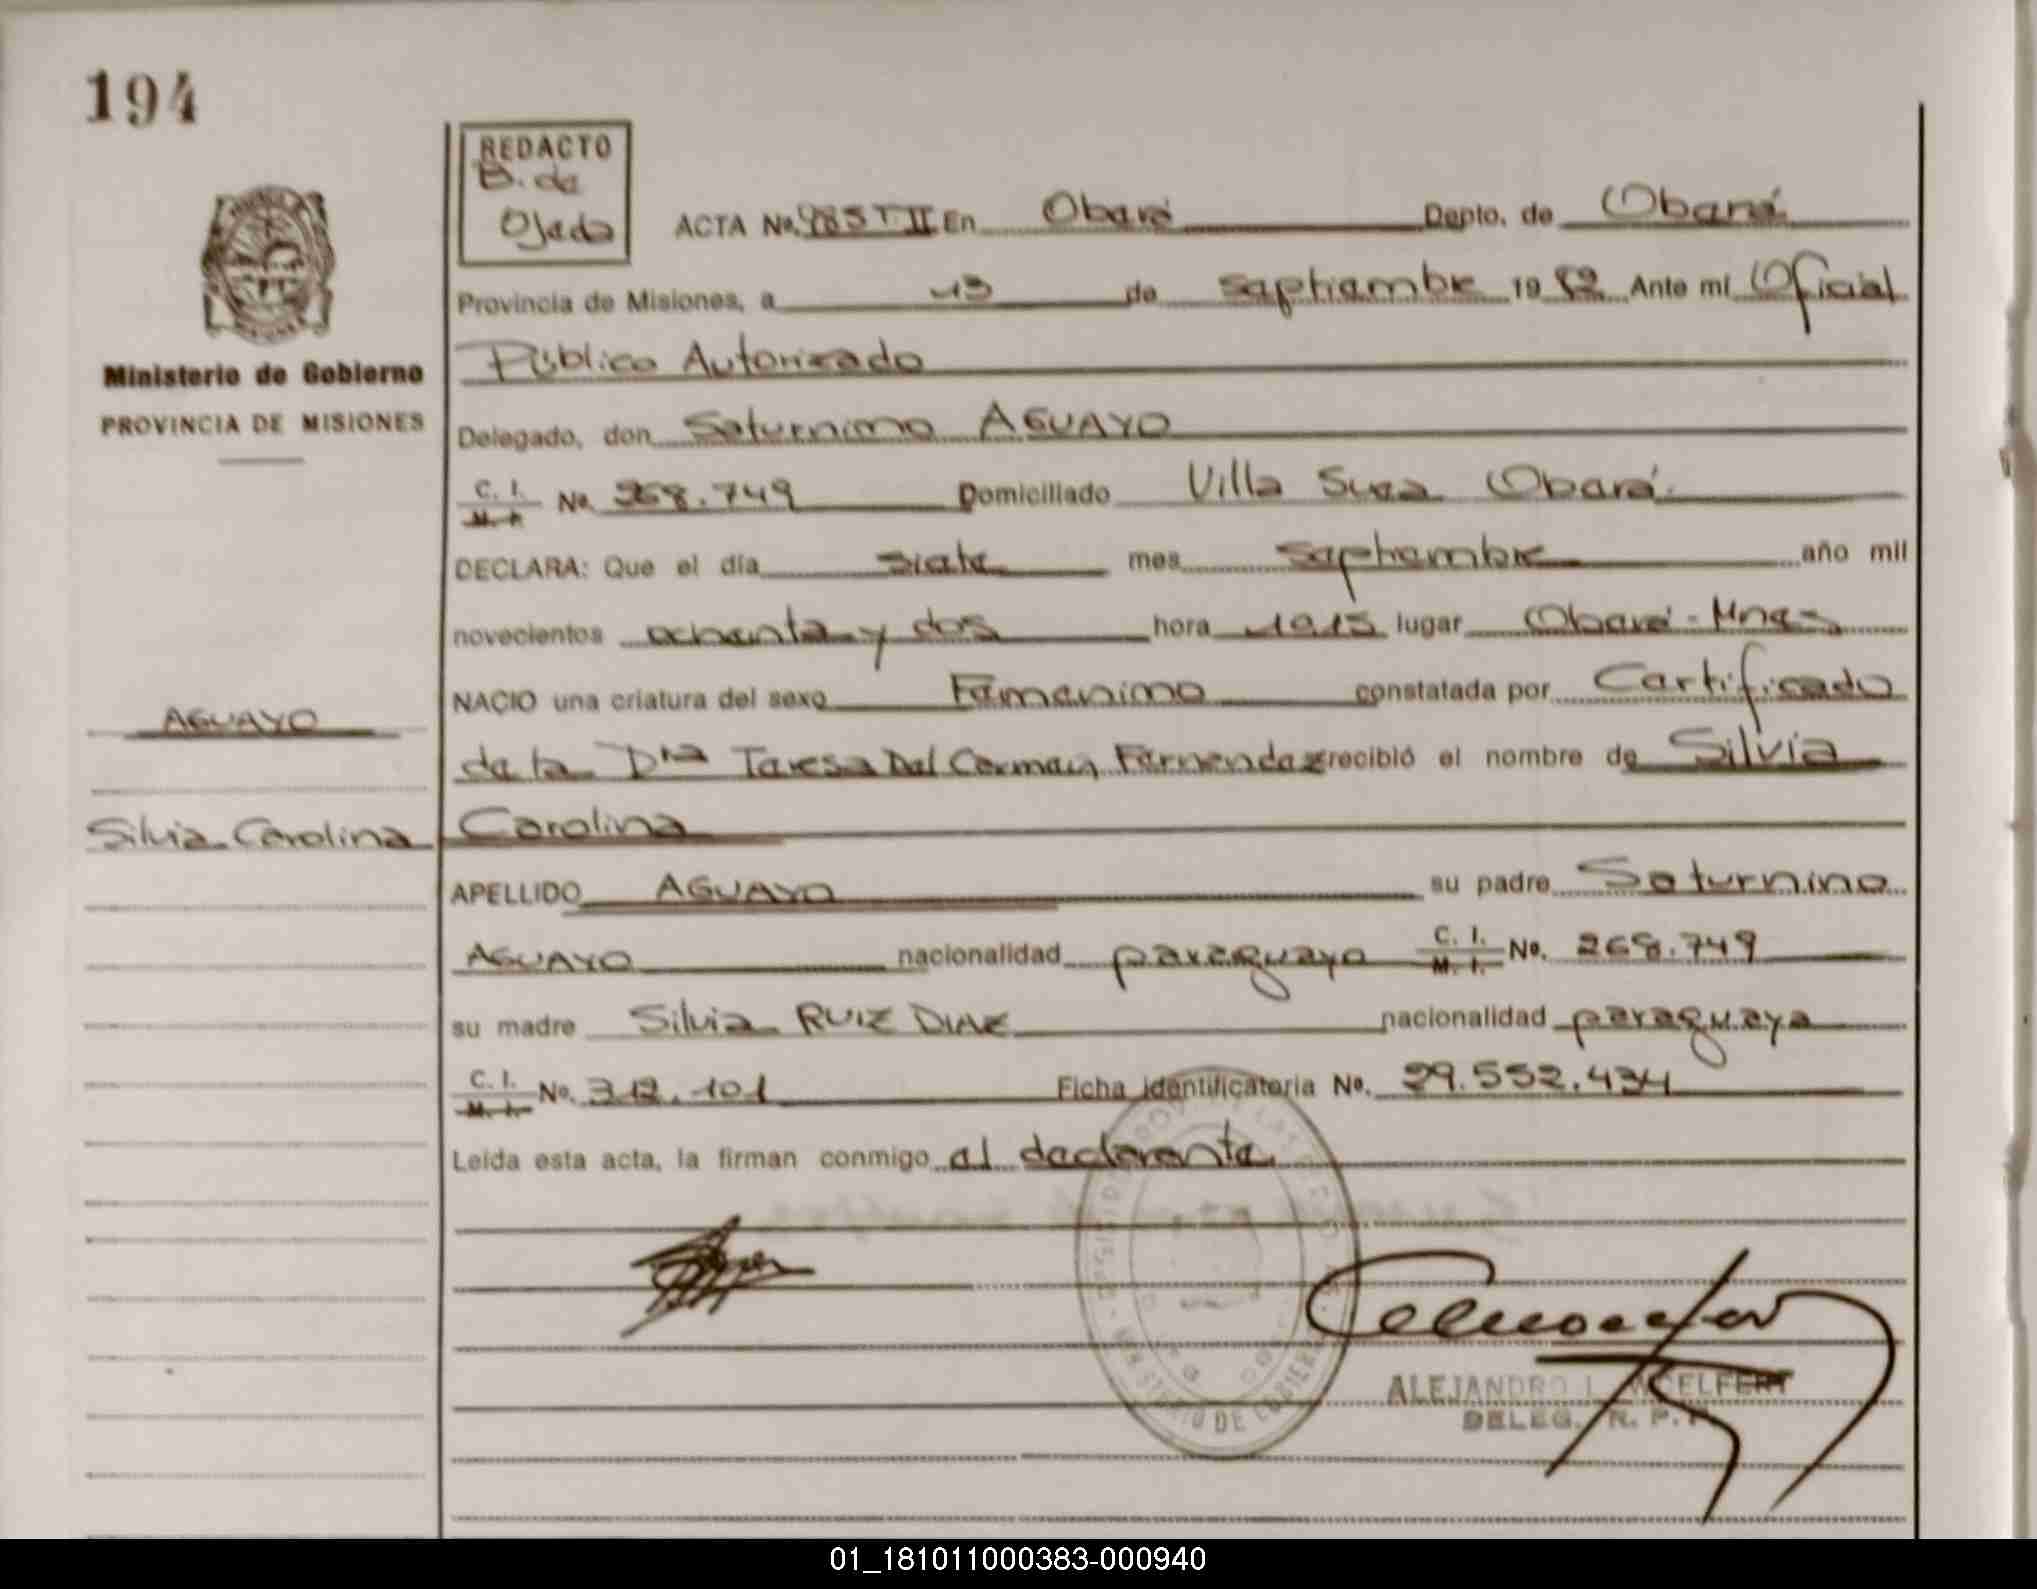 194
REDACTO
B. de
Ojeda
ACTA No. 985 T II En Oberá Depto. de Oberá
Provincia de Misiones, a 13 de septiembre 19 82 Ante mí Oficial
Ministerio de Gobierno
PROVINCIA DE MISIONES
Público Autorizado
Delegado, don Saturnino AGUAYO
C. I. M. I. No. 268.749 Domiciliado Villa Svea Oberá.
DECLARA: Que el día siete mes septiembre año mil
novecientos ochenta y dos hora 19,15 lugar Oberá - Mnes
NACIO una criatura del sexo Femenino constatada por Certificado
AGUAYO
de la Dra Teresa Del Carmen Fernendez recibió el nombre de Silvia
Silvia Carolina
Carolina
APELLIDO AGUAYO su padre Saturnino
AGUAYO nacionalidad paraguayo C. I. M. I. No. 268.749
su madre Silvia RUIZ DIAZ nacionalidad paraguaya
C. I. M. I. No. 312.101 Ficha identificatoria No. 29.552.434
Leída esta acta, la firman conmigo el declarante.
MINISTERIO DE GOBIERNO
ALEJANDRO L. WOELFERT
DELEG. R. P. P.
01_181011000383-000940